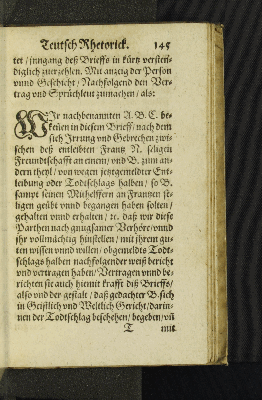 Teutsch Rhetorick. 145
tet / inngang deß Brieffs in kürtz versten⸗
diglich zuerzehlen. Mit anzeig der Person
vnnd Geschicht / Nachfolgend den Ver⸗
trag vnd Sprüchleut zumachen / als:
WIr nachbenannten A. B. C. be⸗
kennen in diesem Brieff / nach dem
sich Irrung vnd Gebrechen / zwi⸗
schen deß entleibten Frantz N. seligen
Freundschafft an einem / vnd B. zum an⸗
dern theyl / von wegen jetztgemeldter Ent⸗
leibung oder Todtschlags halben / so B.
sampt seinen Mithelffern an Frantzen se⸗
ligen geübt vnnd begangen haben solten /
gehalten vnnd erhalten / ꝛc. daß wir diese
Parthen nach gnugsamer Verhöre / vnnd
jhr vollmächtig hinstellen / mit jhrem gu⸗
ten wissen vnnd willen / obgemeldts Todt⸗
schlags halben nachfolgender weiß bericht
vnd vertragen haben / Vertragen vnnd be⸗
richten sie auch hiemit krafft diß Brieffs /
also vnd der gestalt / daß gedachter B. sich
in Geistlich vnd Weltlich Gericht / darin⸗
nen der Todtschlag beschehen / begeben / vñ
T mit